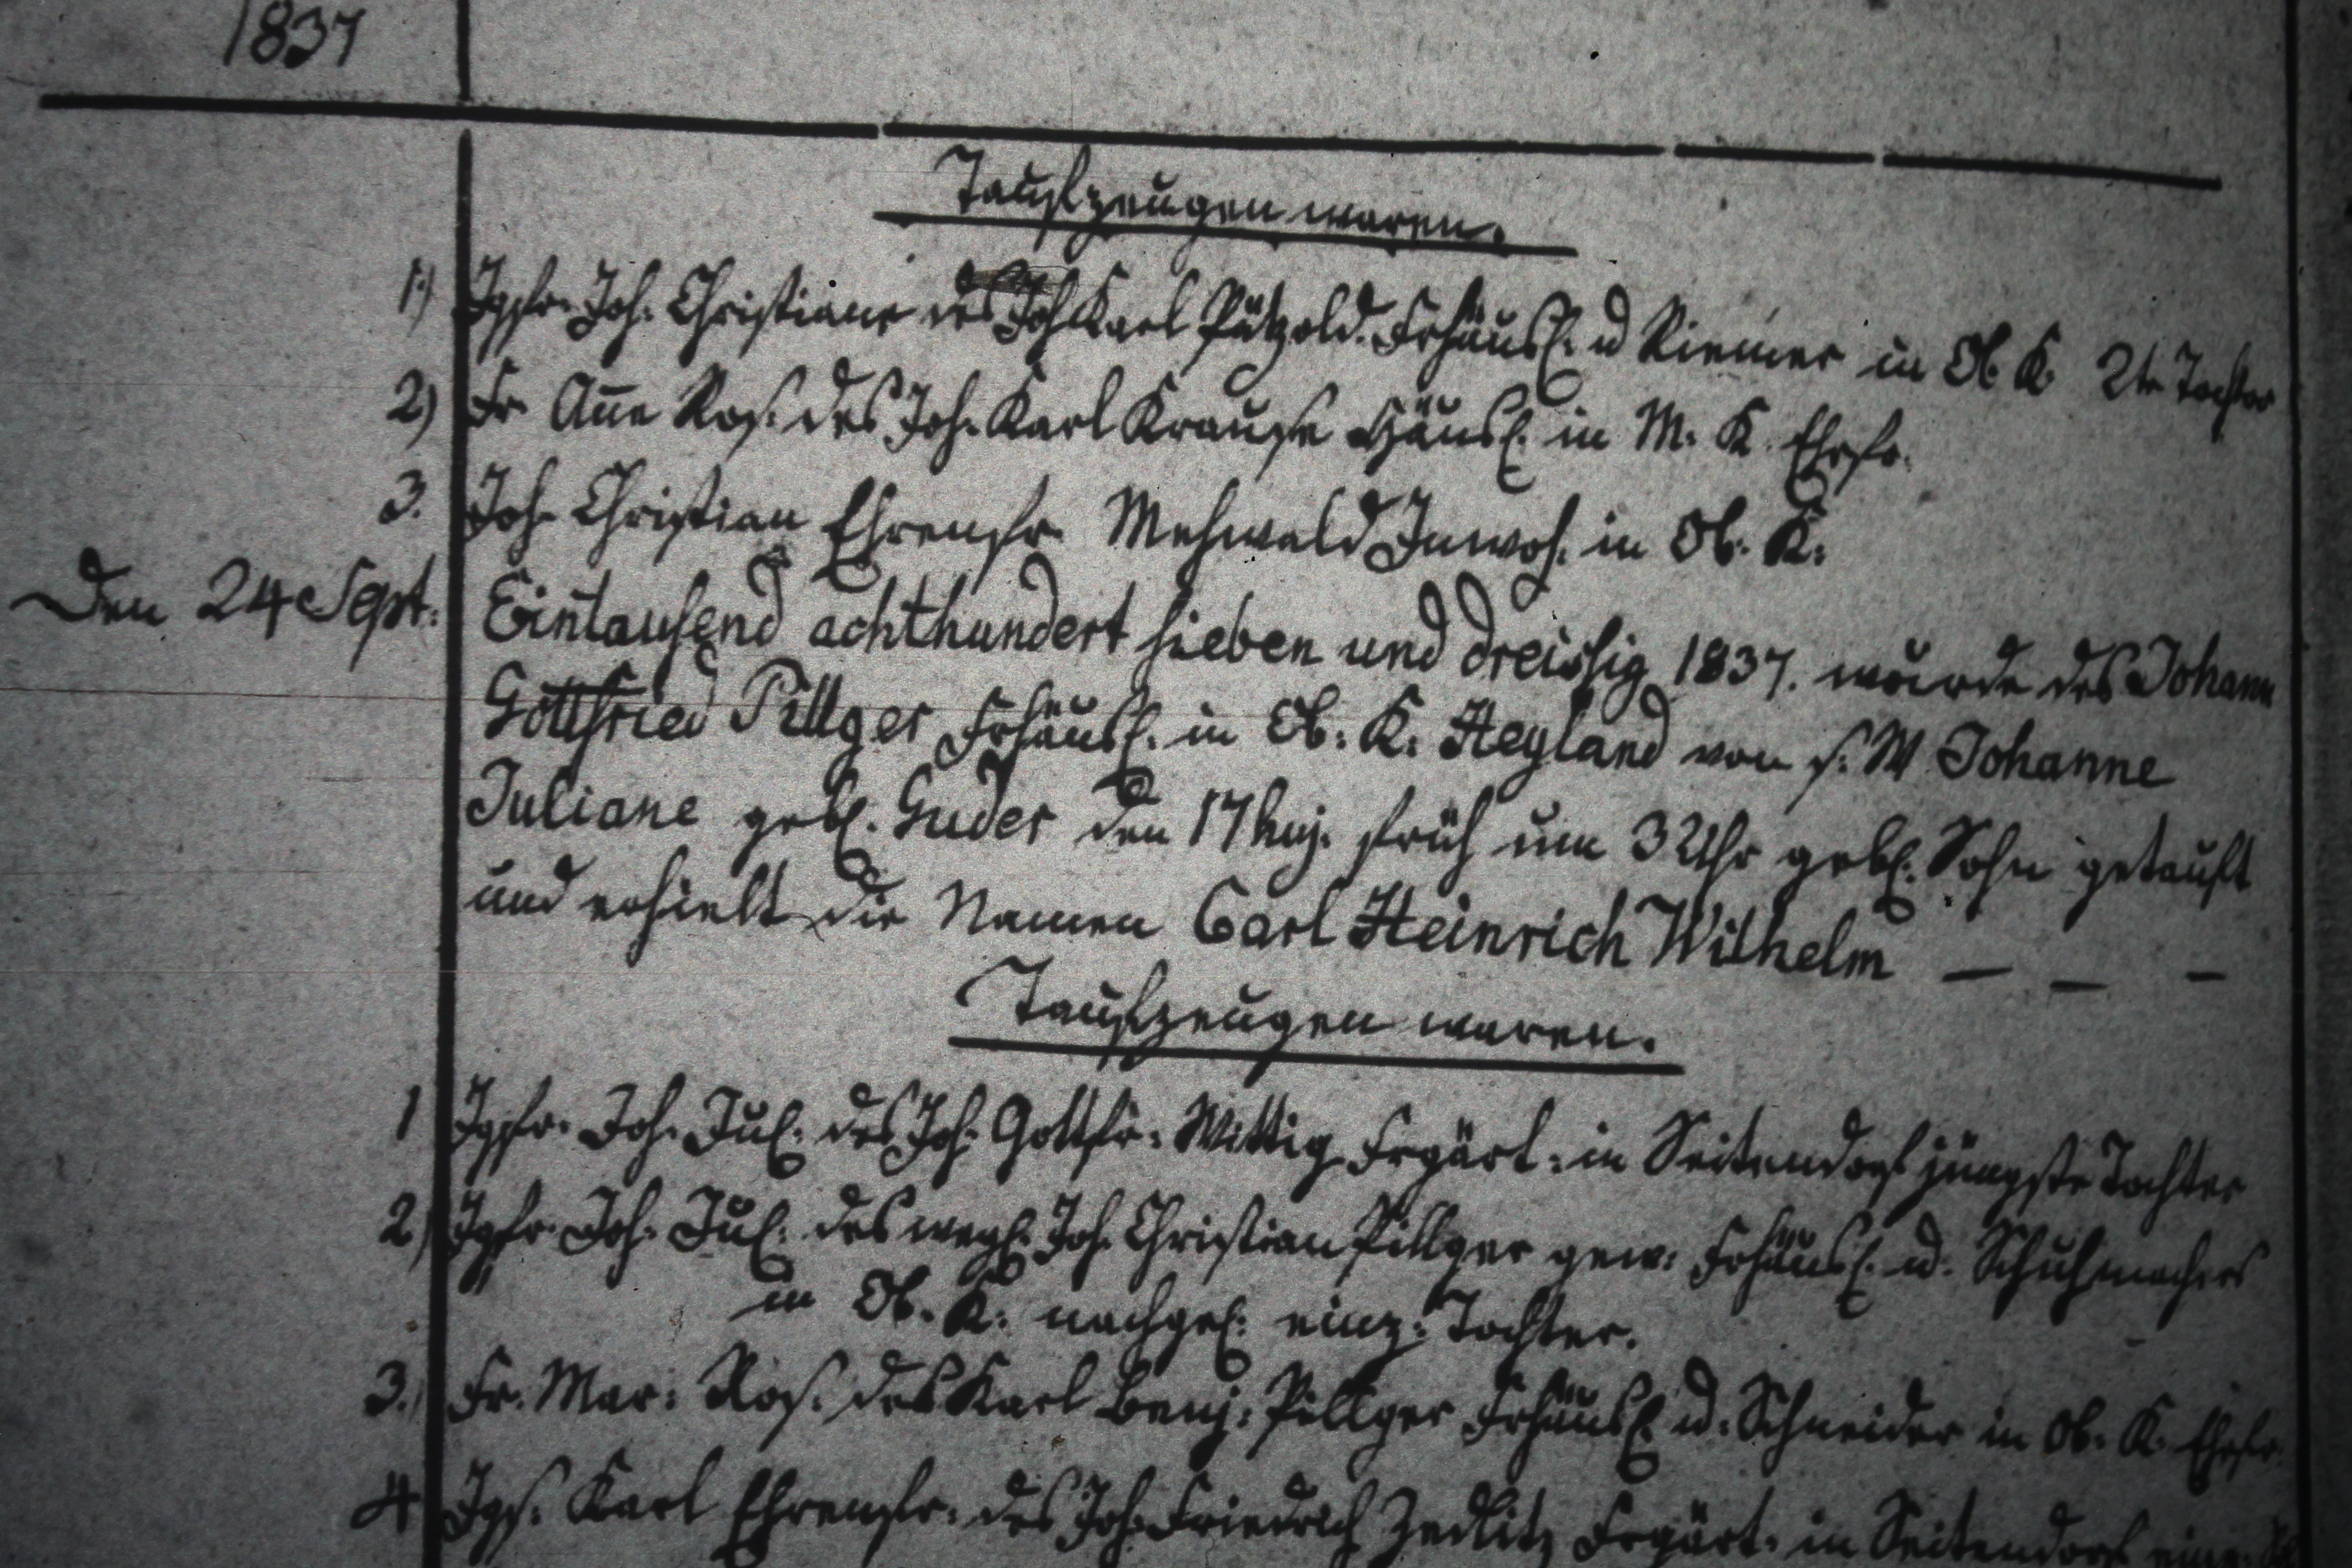 1837
Taufzeugen waren.
1.) Jgfr. Joh. Christiane des Joh Karl Pätzold. Frhäusl. u Riemer in Ob. K. 2te Tochter
2) Fr. Añe Ros. des Joh. Karl Krause Häusl. in M. K. Ehefr.
3. Joh. Christian Ehrenfr. Mehwald Inwoh. in Ob. K.
Den 24 Sept: Eintausend achthundert sieben und dreissig 1837. wurde des Johann
Gottfried Pillger Frhäusl. in Ob. K. Heyland von s. W Johanne
Juliane gebl. Guder den 17 huj. früh um 3 Uhr gebl. Sohn getauft
und erhielt die Namen Carl Heinrich Wilhelm — — —
Taufzeugen waren.
1 Jgfr. Joh. Jul. des Joh. Gottfr. Wittig Frgärt. in Seitendorf jüngste Tochter
2) Jgfr. Joh. Jul. des weyl. Joh. Christian Pillger gew. Frhäusl. u. Schuhmachers
in Ob. K. nachgel. einz. Tochter.
3.) Fr. Mar: Ros. des Karl Benj: Pillger Frhäusl. u. Schneider in Ob. K. Ehefr.
4 Jgs. Karl Ehrenfr. des Joh. Friedrich Zedlitz Frgärt. in Seitendorf